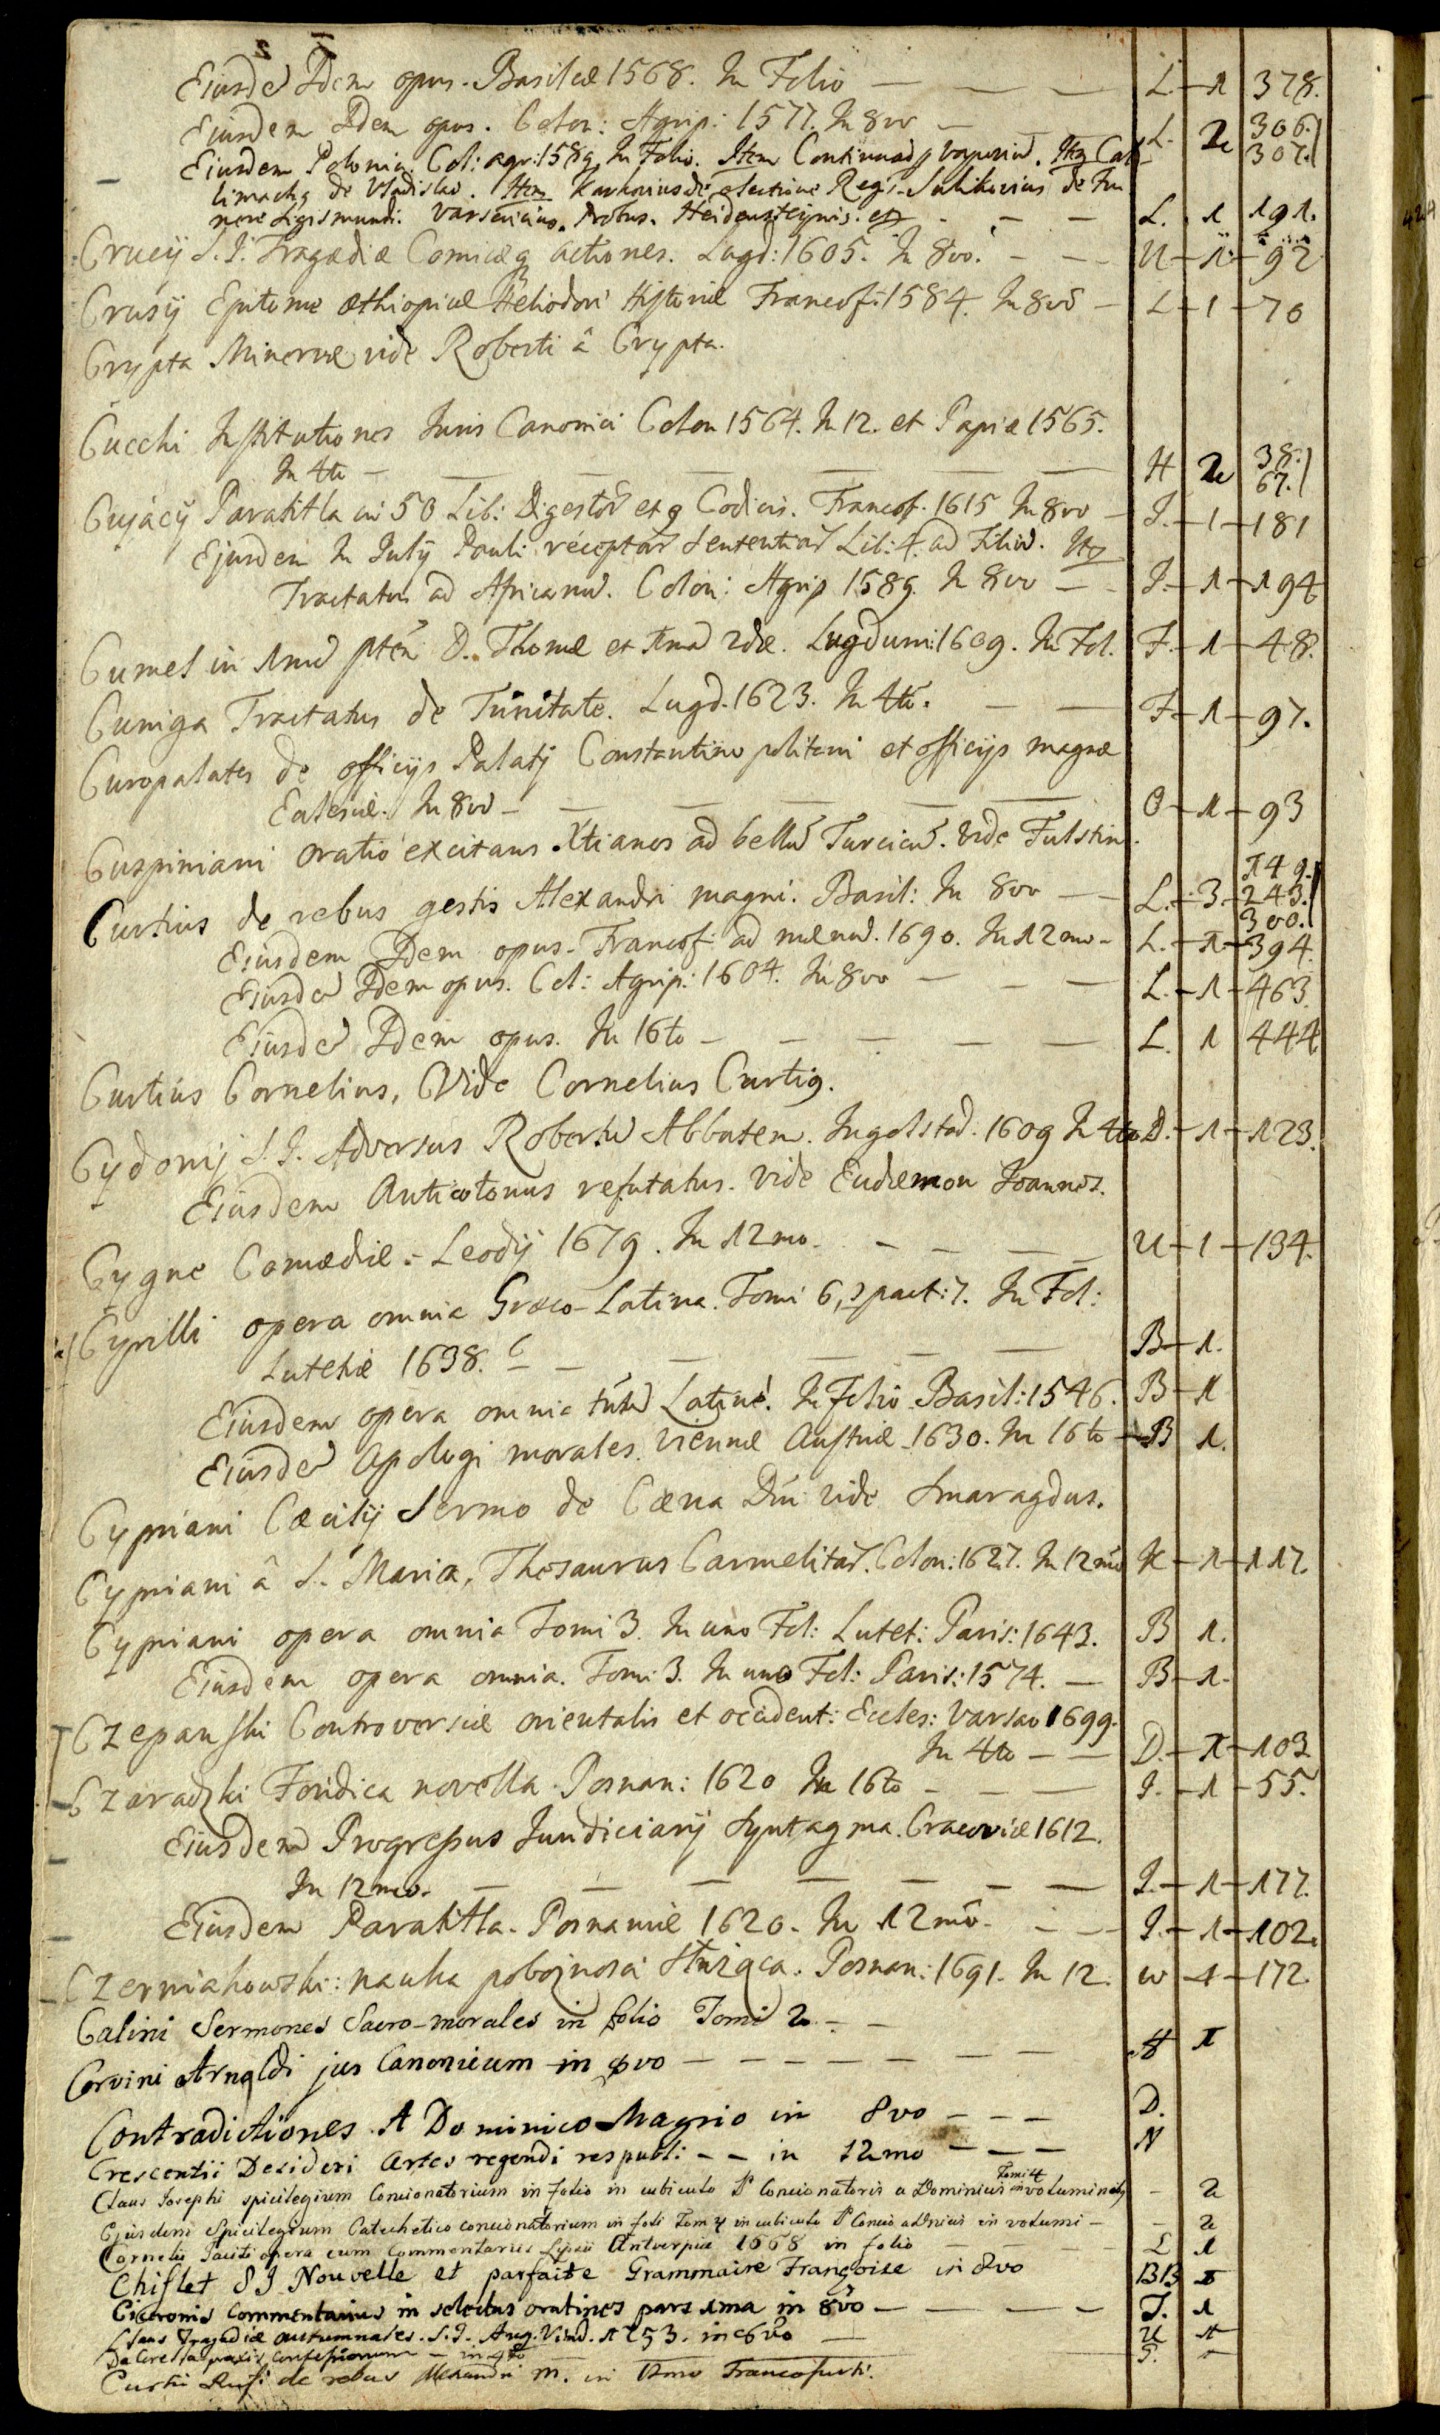 Eiusdē Idem opus. Basileæ 1568. In Folio — L. 1 378.
Eiusdem Idem opus. Colon: Agrip: 1577. In 8vo — L. 2 306. 307.
Eiusdem Polonia Col: agr: 1589 In Folio. Item
limachq de Vladislao. Item de electione Regis. Sulikovius de Fu
nere Sigismundi. Varsevicius. Probus. — L. 1 191.
Crucij S. I. Tragædiæ Comicæq actiones. Lugd: 1605. In 8vo. — U 1 92
Crusij Epitome æthiopicæ Heliodori Historiæ Francof: 1584. In 8vo — L 1 70
Crypta Minervæ vide Roberti â Crypta.
Cucchi Institutiones Iuris Canonici Colon 1564. In 12. et Papiæ 1565.
In 4to — H 2 38. 67.
Cujacij Paratitla in 50 Lib: Digestor et 9 Codicis. Francof. 1615 In 8vo — I. 1 181
Ejusdem In Julij Pauli receptar Sententiar Lib: 4. ad Filiū. Itq
Tractatus ad Africanū. Colon: Agrip 1589. In 8vo — I. 1 194
Cumel in 1mā ptem D. Thomæ et 1mā 2dæ. Lugduni: 1609. In Fol. F. 1 48.
Cuniga Tractatus de Trinitate. Lugd. 1623. In 4to. — F. 1 97.
Curopalates de officijs Palatij Constantinopolitani et officijs magnæ
Eclesiæ. In 8vo — O 1 93
Cuspiniani oratio excitans Xtianos ad bellū Turcicū. Vide Fulstin.
Curtius de rebus gestis Alexandri magni. Basil: In 8vo — L. 3 149. 243. 300.
Eiusdem Idem opus. Francof: ad mænū. 1690. In 12mo — L. 1 394.
Eiusdē Idem opus. Col: Agrip: 1604. In 8vo — L. 1 463
Eiusdē Idem opus. In 16to — L. 1 444
Curtius Cornelius, Vide Cornelius Curtiq.
Cydonij S. I. Adversus Robertū Abbatem. Ingolstad. 1609 In 4to D. 1 123.
Eiusdem Anticotonus refutatus. vide Eudæmon Joannes.
Cygne Comædiæ. Leodij 1679. In 12mo. — U 1 134.
Cyrilli opera omnia Græco-Latina. Tomi 6, part: 7. In Fol:
Lutetiæ 1638. — B 1.
Eiusdem opera omnia tūm Latinè. In Folio Basil: 1546. B 1
Eiusdē Apologi morales. Viennæ Austriæ 1630. In 16to — B 1.
Cypriani Cæcilij Sermo de Cæna Dni vide Smaragdus.
Cypriani â S. Maria, Thesaurus Carmelitar. Colon: 1627. In 12mo K 1 117.
Cypriani opera omnia Tomi 3. In uno Fol: Lutet: Paris: 1643. B 1.
Eiusdem opera omnia. Tomi 3. In uno Fol: Paris: 1574. — B 1.
Czepanski Controversiæ orientalis et occident: Eccles: Varsav 1699.
In 4to — D. 1 103
Czaradzki Foridica novella Posnan: 1620 In 16to — I. 1 55.
Eiusdem Progressus Iundiciarij Syntagma. Cracoviæ 1612.
In 12mo. — I. 1 177.
Eiusdem Paratitla. Posnaniæ 1620. In 12mo. — I. 1 102.
Czerniakowski: nauka pobożności służąca. Posnan: 1691. In 12. W 1 172.
Calini Sermones Sacro-morales in folio Tomi 2 —
Corvini Arnoldi jus Canonicum in 8vo — H 1
Contradictiones A Dominico Magrio in 8vo — D.
Crescentii Desideri artes regendi respubl: — in 12mo — N
Claus Josephi spicilegium Concionatorium in folio in cubiculo P Concionatoris a Dominicis Tomi 4 in voluminib — 2
Ejusdem Spicilegium Catechetico concionatorium in foli Tom 4 in cubiculo P Concio in volumi — 2
Cornelii Taciti opera cum Commentariis Lipsii Antverpiæ 1668 in folio — L 1
Chiflet S J Nouvelle et parfaite Grammaire Françoise in 8vo BB 1
Ciceronis Commentarius in selectas orationes pars 1ma in 8vo — I. 1
Claus Tragædiæ autumnales. S. J. Aug. Vind. 1753. in 8vo — U 1
praxis Confessionum — in 4to
Curtii Rufi de rebus Alexandri M. in 12mo Francofurti.